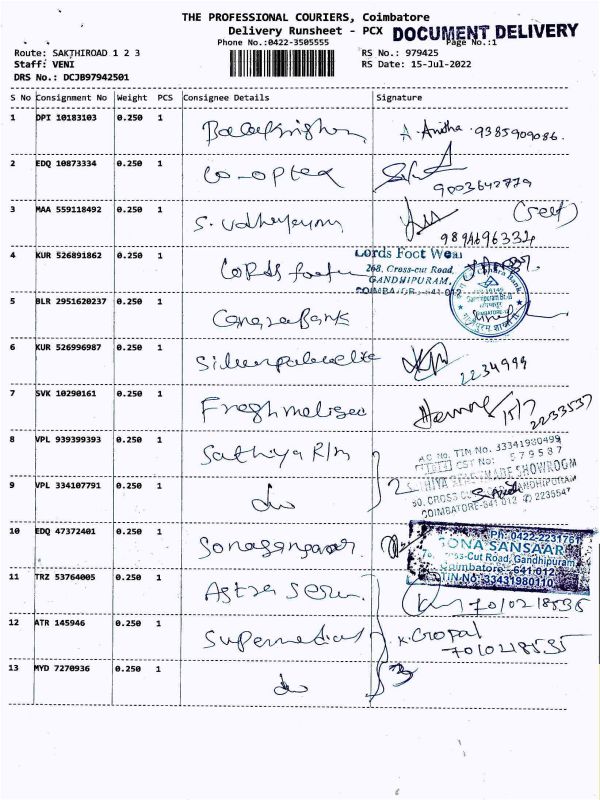 THE PROFESSIONAL COURIERS, Coimbatore
Delivery Runsheet - PCX DOCUMENT DELIVERY
Phone No.:0422-3505555 Page No.:1
Route: SAKTHIROAD 1 2 3 RS No.: 979425
Staff: VENI RS Date: 15-Jul-2022
DRS No.: DCJB97942501
S No Consignment No Weight PCS Consignee Details Signature
1 DPI 10183103 0.250 1 Balakrishnan A. Anitha 9385909086.
2 EDQ 10873334 0.250 1 Co-optex 9003642779
3 MAA 559118492 0.250 1 S. Udhayakumar (self)
9894696334
4 KUR 526891862 0.250 1 Lords footwear Lords Foot Wear
268, Cross-cut Road,
GANDHIPURAM,
COIMBATORE-641 012
5 BLR 2951620237 0.250 1 Canara Bank
6 KUR 526996987 0.250 1 2234999
7 SVK 10290161 0.250 1 15/7 2233537
8 VPL 939399393 0.250 1 Sathiya R/m
TIN No. 33341980499
CST No: 579587
SHOWROOM
9 VPL 334107791 0.250 1 do 2
50, CROSS CUT GANDHIPURAM
COIMBATORE-641 012 ✆ 2235547
10 EDQ 47372401 0.250 1 Sonasansaar
Ph: 0422-2231761
SONA SANSAAR
Cross-Cut Road, Gandhipuram,
Coimbatore - 641 012
TIN No: 33431980110
11 TRZ 53764005 0.250 1 7010218535
12 ATR 145946 0.250 1 Supermedicals K. Gopal
7010218535
13 MYD 7270936 0.250 1 do